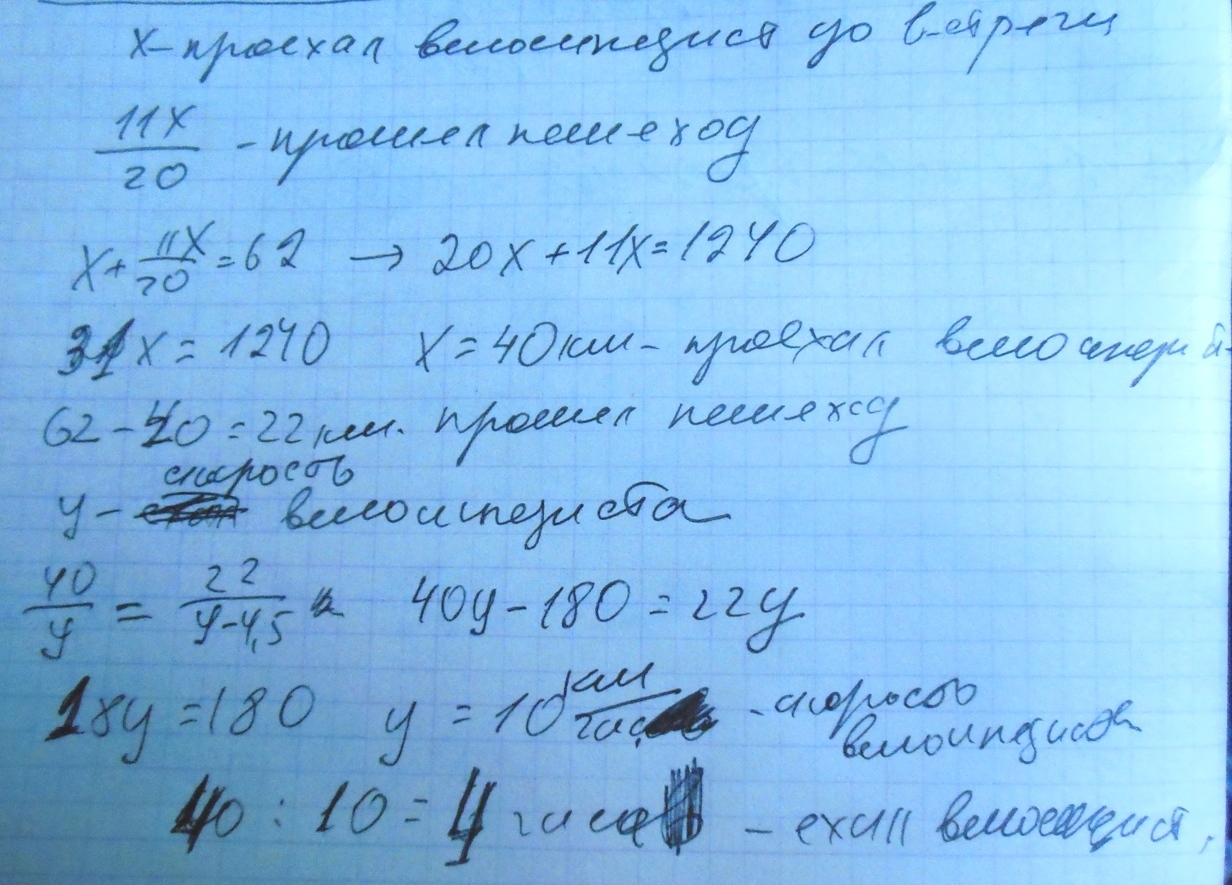 x - проехал велосипедист до встречи
11x/20 - прошел пешеход
x + 11x/20 = 62 → 20x + 11x = 1240
31x = 1240 x = 40 км - проехал велосипедист
62 - 40 = 22 км. прошел пешеход
скорость
y - велосипедиста
40/y = 22/y-4,5 40y - 180 = 22y
18y = 180 y = 10 км/час - скорость велосипедиста
40 : 10 = 4 часа - ехал велосипедист.